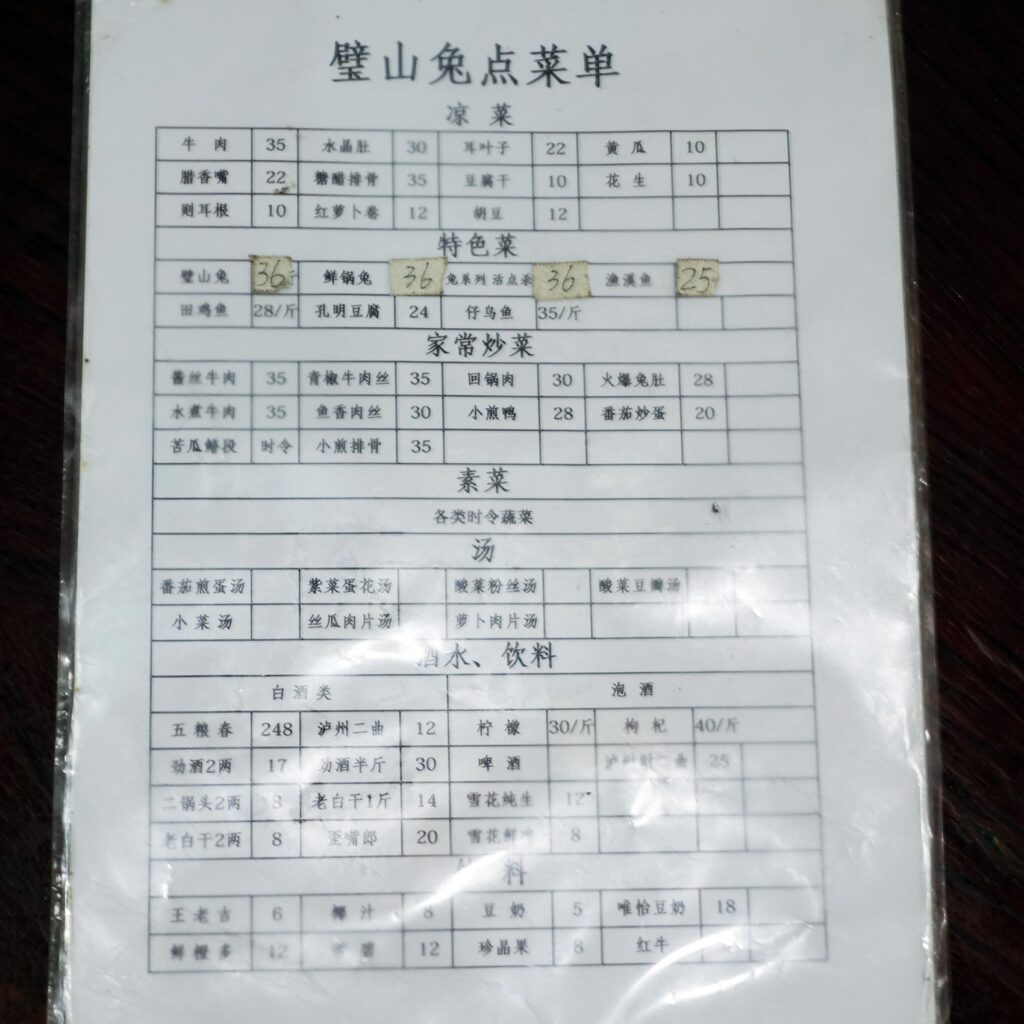 璧山兔点菜单
凉 菜
牛 肉 35 水晶肚 30 耳叶子 22 黄 瓜 10
腊香嘴 22 糖醋排骨 35 豆腐干 10 花 生 10
则耳根 10 红萝卜卷 12 胡豆 12
特色菜
璧山兔 36 鲜锅兔 36 兔系列 活点杀 36 渔溪鱼 25
田鸡鱼 28/斤 孔明豆腐 24 仔乌鱼 35/斤
家常炒菜
酱丝牛肉 35 青椒牛肉丝 35 回锅肉 30 火爆兔肚 28
水煮牛肉 35 鱼香肉丝 30 小煎鸭 28 番茄炒蛋 20
苦瓜鳝段 时令 小煎排骨 35
素菜
各类时令蔬菜
汤
番茄煎蛋汤 紫菜蛋花汤 酸菜粉丝汤 酸菜豆瓣汤
小 菜 汤 丝瓜肉片汤 萝卜肉片汤
酒水、饮料
白 酒 类 泡 酒
五 粮 春 248 泸州二曲 12 柠 檬 30/斤 枸 杞 40/斤
劲酒2两 17 劲酒半斤 30 啤 酒 25
二锅头2两 8 老白干1斤 14 雪花纯生 12
老白干2两 8 歪嘴郎 20 雪花鲜 8
料
王 老 吉 6 椰 汁 8 豆 奶 5 唯怡豆奶 18
鲜 橙 多 12 雪 碧 12 珍晶果 8 红牛